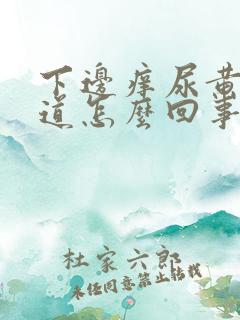 下邊痒尿黄
道怎麼回事
杜家六郎
未经同意禁止转载